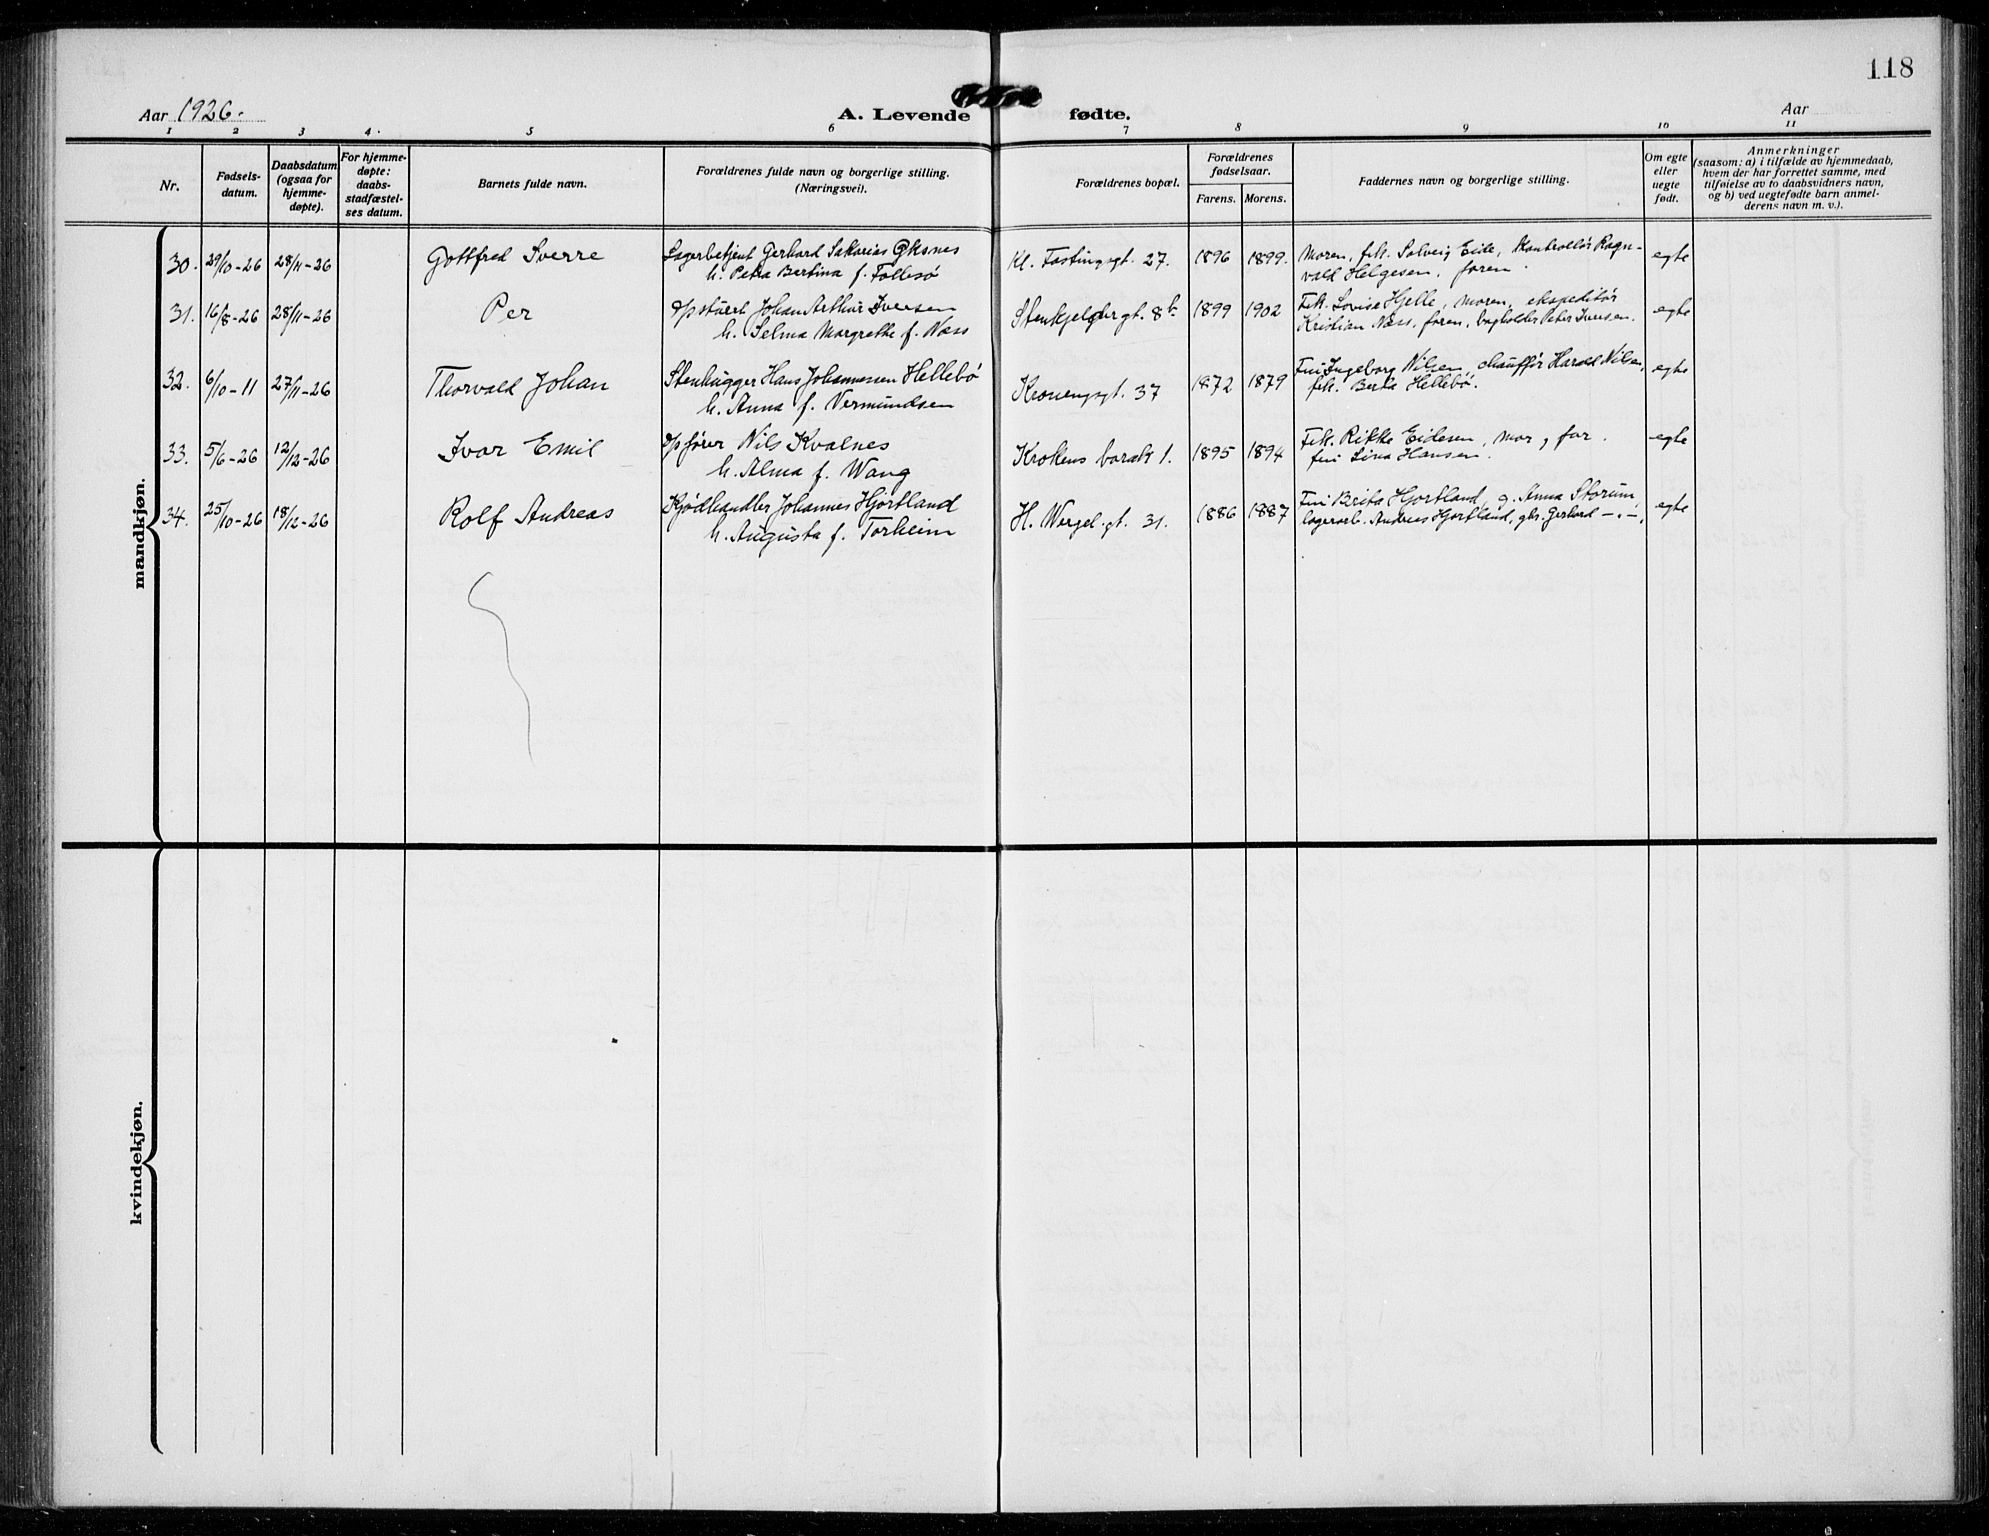 118
Aar 1926.
A. Levende fødte.
Aar
1 2 3 4. 5 6 7 8 9 10 11
Nr.
Fødsels-
datum.
Daabsdatum
(ogsaa for
hjemme-
døpte).
For hjemme-
døpte:
daabs-
stadfæstel-
ses datum.
Barnets fulde navn.
Forældrenes fulde navn og borgerlige stilling.
(Næringsvei).
Forældrenes bopæl.
Forældrenes
fødselsaar.
Farens. Morens.
Faddernes navn og borgerlige stilling.
Om egte
eller
uegte
født.
Anmerkninger
(saasom: a) i tilfælde av hjemmedaab,
hvem der har forrettet samme, med
tilføielse av to daabsvidners navn,
og b) ved uegtefødte barn anmel-
derens navn m. v.).
mandkjøn.
30. 29/10-26 28/11-26 Gottfred Sverre
Lagerbetjent Gerhard Sakarias Øksnes
h. Petra Bertina f. Follesö
Kl. Fastingsgt. 27. 1896 1899.
Moren, frk. Solveig Eide, kontrollör Ragn-
vald Helgesen, faren.
egte
31. 16/8-26 28/11-26 Per
Johan Arthur Iversen
h. Selma Margrethe f. Næss
Stenkjelgergt. 8b 1899 1902
Frk. Lovise Hjelle, moren, ekspeditör
Kristian Næss, faren, bagholder Peter Iversen.
egte
32. 6/10-11 27/11-26 Thorvald Johan
Stenhugger Hans Johannessen Hellebö
h. Anna f. Vermundsen
Kronengsgt. 37 1872 1879
Fru Ingeborg Nilsen, chauffør Harald Nilsen,
frk. Berta Hellebö.
egte
33. 5/6-26 12/12-26 Ivar Emil
Nils Kvalnes
h. Alma f. Wang
Krokens barak 1. 1895 1894
Frk. Rikke Eidesen, mor, far.
fru Lina Hansen.
egte
34. 25/10-26 18/12-26 Rolf Andreas
Kjödhandler Johannes Hjortland
h. Augusta f. Torheim
H. Wergel.gt. 31. 1886 1887
Fru Brita Hjortland, g. Anna Storum,
lagerarb. Andreas Hjortland, gbr. Gerhard -.-.
egte
kvindekjøn.